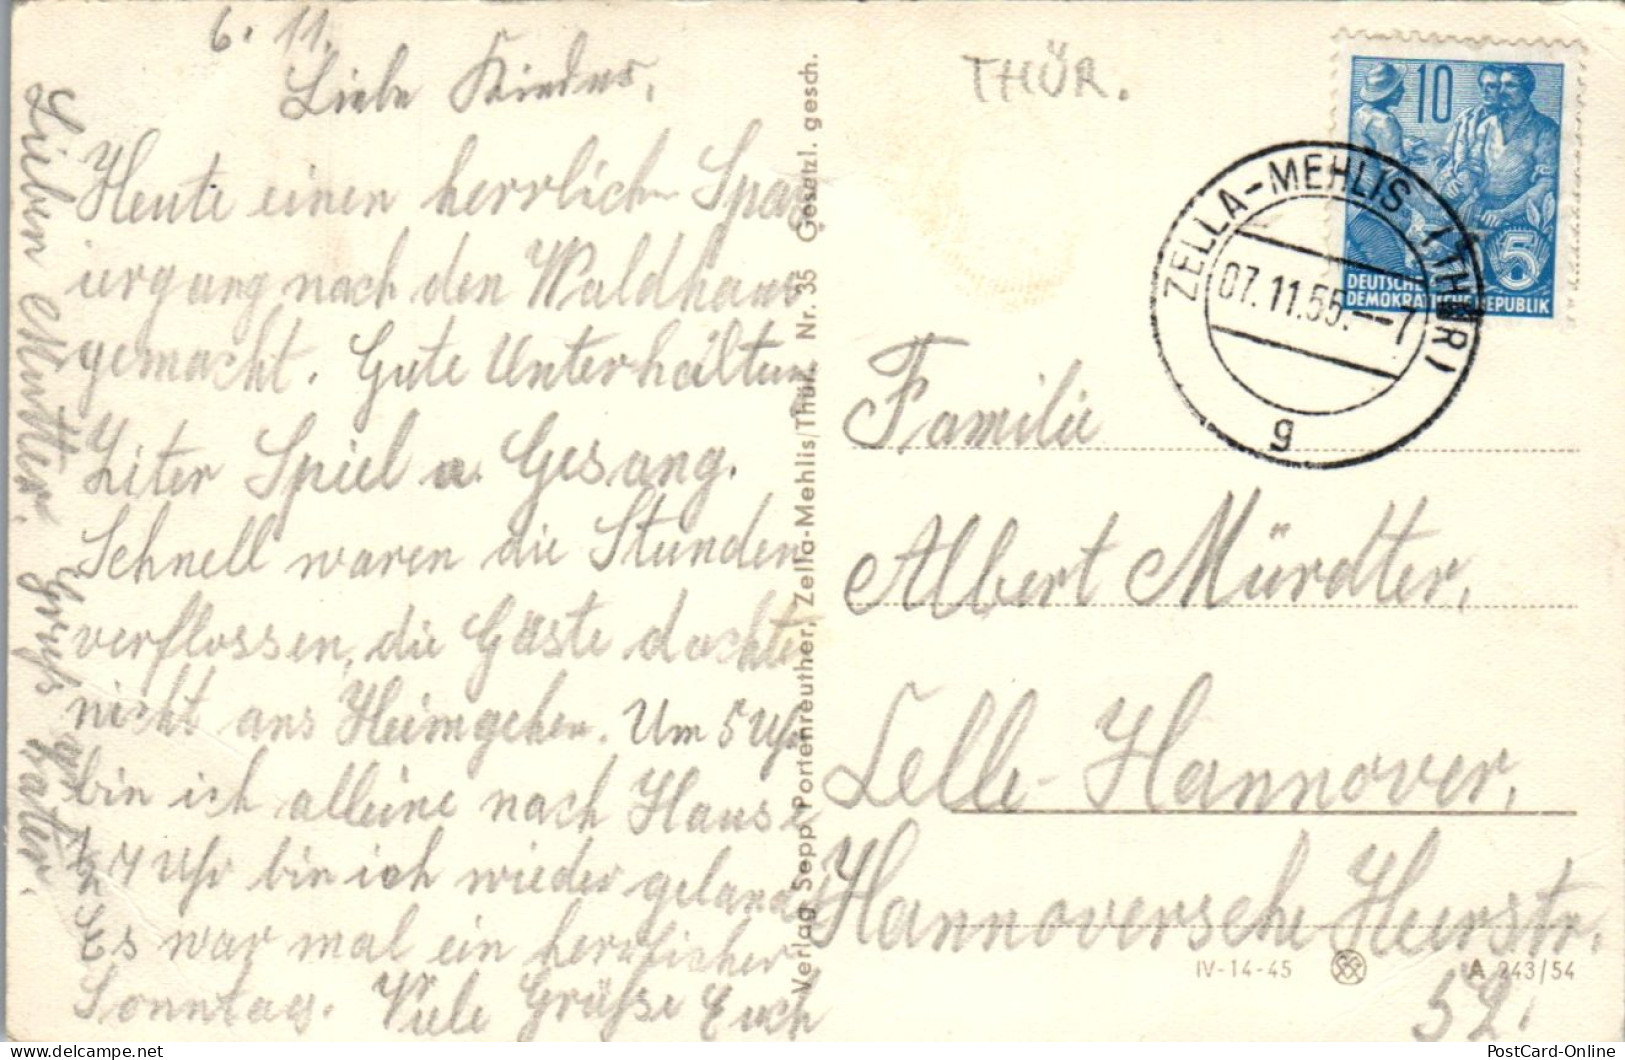 6. 11.
Liebe Kinder,
Heute einen herrlich Spaz
iergang nach den Waldhaus
gemacht. Gute Unterhaltun
Ziter Spiel u. Gesang.
Schnell waren die Stunden
verflossen, die Gäste dachte
nicht ans Heimgehen. Um 5 Uhr
bin ich alleine nach Hause
7 Uhr bin ich wieder geland
Es war mal ein herrlicher
Sonntag. Viele Grüße Euch
Lieben Mutter. Gruß Vater.
Verlag Sepp Portenreuther, Zella-Mehlis/Thür. Nr. 35 Gesetzl. gesch.
THÜR.
10
5
DEUTSCHE
DEMOKRATISCHE REPUBLIK
ZELLA-MEHLIS (THÜR)
07.11.55.--7
g
Familie
Albert Mürdter,
Celle-Hannover,
Hannoversche Heerstr.
52.
IV-14-45
A 243/54
PostCard-Online